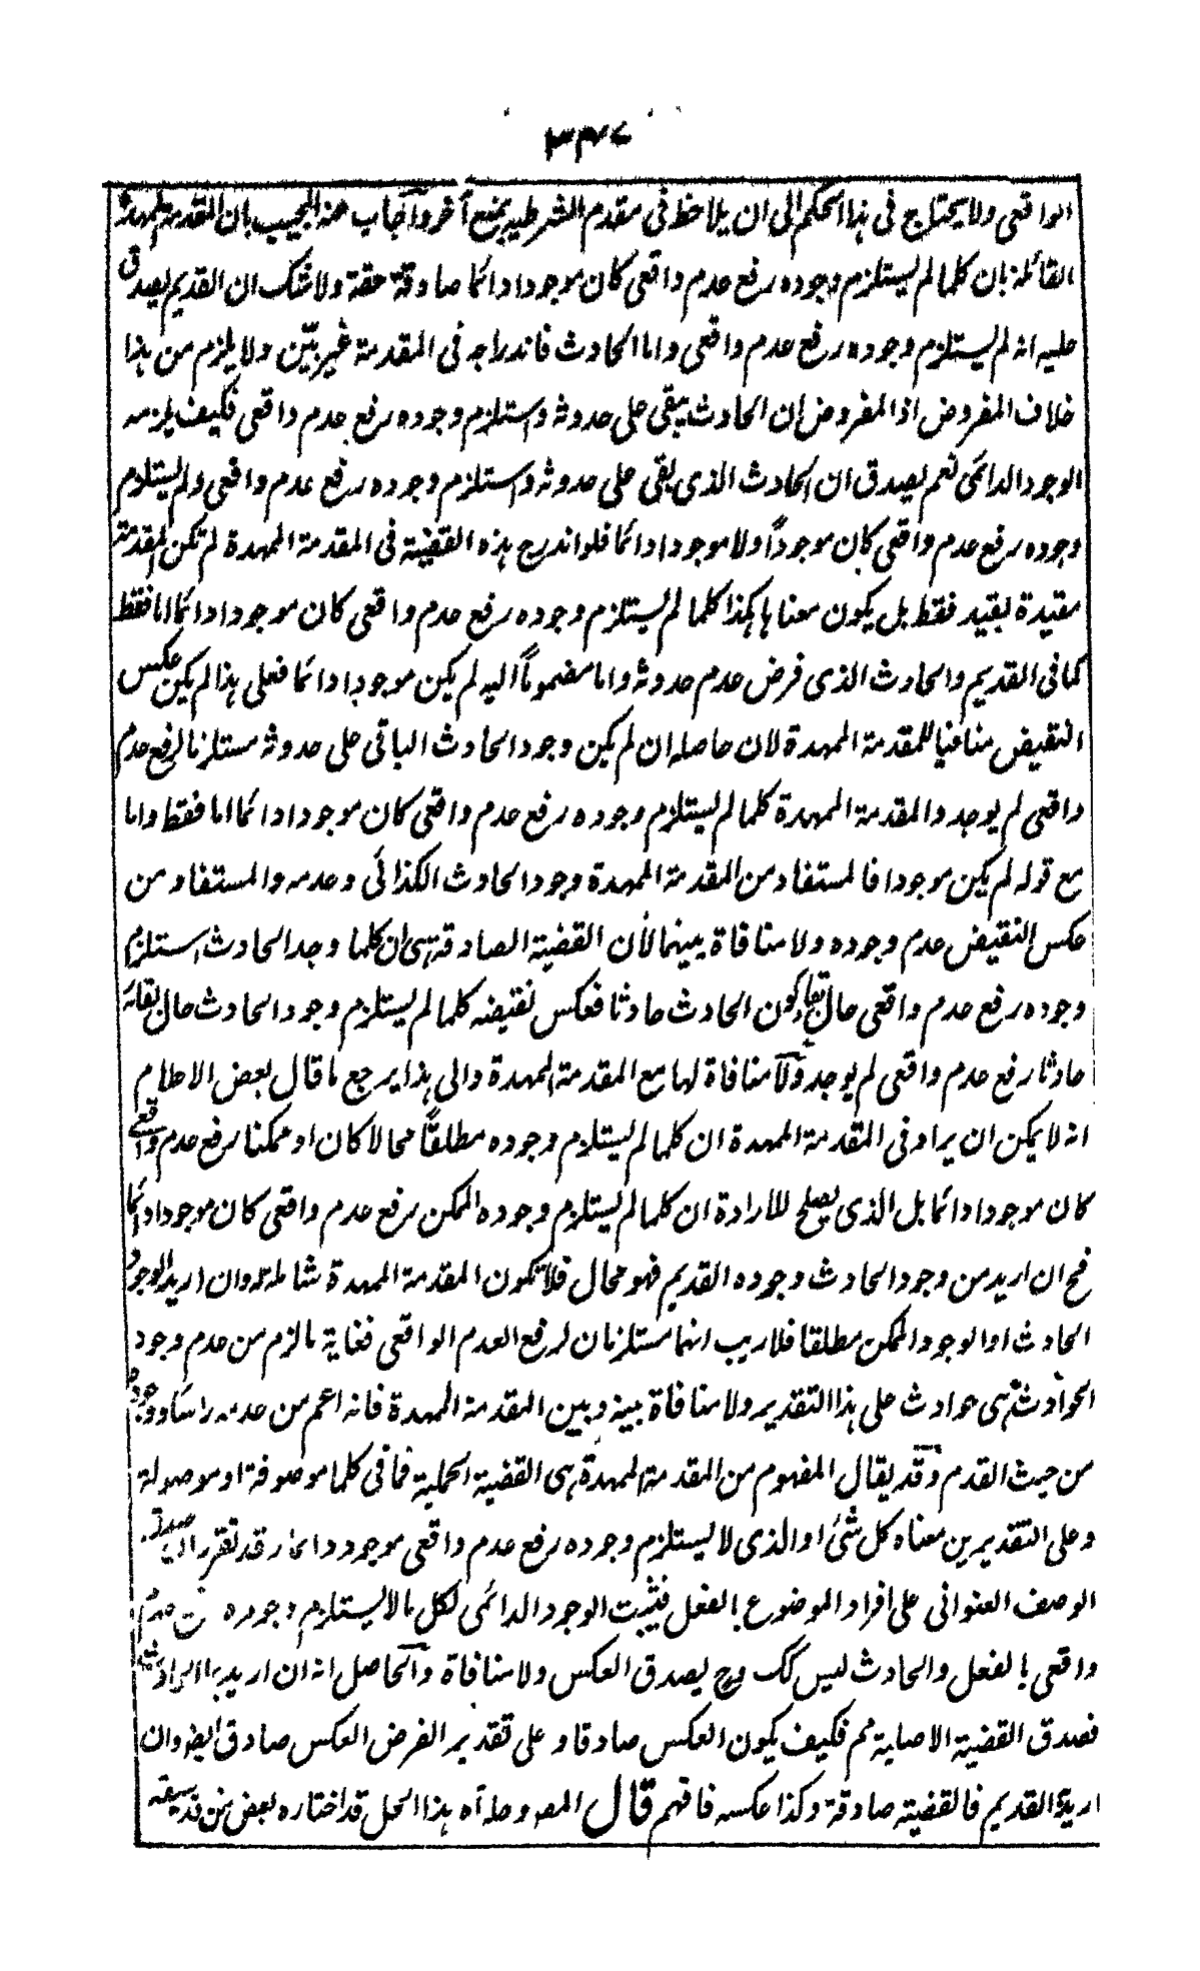 ٣٤٧
الواقعي ولا يحتاج في هذا الحكم الى ان يلاحظ في مقدم الشرطية بمنع آخر واجاب عنه المجيب بان المقدمة الممهدة
القائلة بان كلما لم يستلزم وجوده رفع عدم واقعي كان موجودا دائما صادقة حقة ولا شك ان القديم يصدق
عليه انه لم يستلزم وجوده رفع عدم واقعي واما الحادث فاندراجه في المقدمة غير بيّن ولا يلزم من هذا
خلاف المفروض اذا المفروض ان الحادث يبقى على حدوثه واستلزم وجوده رفع عدم واقعي فكيف يلزمه
الوجود الدائمي نعم يصدق ان الحادث الذي بقى على حدوثه واستلزم وجوده رفع عدم واقعي ولم يستلزم
وجوده رفع عدم واقعي كان موجوداً ولا موجودا دائما فلو اندرج هذه القضية في المقدمة الممهدة لم تكن المقدمة
مقيدة بقيد فقط بل يكون معناها هكذا كلما لم يستلزم وجوده رفع عدم واقعي كان موجودا دائما اما فقط
كما في القديم والحادث الذي فرض عدم حدوثه واما مضموماً اليه لم يكن موجودا دائما فعلى هذا لم يكن عكس
النقيض منافيا للمقدمة الممهدة لان حاصله ان لم يكن وجود الحادث الباقي على حدوثه مستلزما لرفع عدم
واقعي لم يوجد والمقدمة الممهدة كلما لم يستلزم وجوده رفع عدم واقعي كان موجودا دائما اما فقط واما
مع قوله لم يكن موجودا فالمستفاد من المقدمة الممهدة وجود الحادث الكذائي وعدمه والمستفاد من
عكس النقيض عدم وجوده ولا منافاة بينهما لأن القضية الصادقة هى ان كلما وجد الحادث استلزم
وجوده رفع عدم واقعي حال بقاء كون الحادث حادثا فعكس نقيضه كلما لم يستلزم وجود الحادث حال بقائه
حادثا رفع عدم واقعي لم يوجد ولا منافاة لها مع المقدمة الممهدة والى هذا يرجع ما قال بعض الاعلام
انه لا يمكن ان يراد في المقدمة الممهدة ان كلما لم يستلزم وجوده مطلقاً محالا كان او ممكنا رفع عدم واقعي
كان موجودا دائما بل الذي يصلح للارادة ان كلما لم يستلزم وجوده الممكن رفع عدم واقعي كان موجودا دائما
فح ان اريد من وجود الحادث وجوده القديم فهو محال فلا تكون المقدمة الممهدة شاملة له وان اريد الوجود
الحادث او الوجود الممكن مطلقا فلا ريب انهما مستلزمان لرفع العدم الواقعي فغاية ما لزم من عدم وجود
الحوادث هى حوادث على هذا التقدير ولا منافاة بينه وبين المقدمة الممهدة فانه اعم من عدمه راسا ووجوده
من حيث القدم وقد يقال المفهوم من المقدمة الممهدة هى القضية الحملية فما في كلما موصوفة او موصولة
وعلى التقديرين معناه كل شئ او الذي لا يستلزم وجوده رفع عدم واقعي موجود دائما وقد تقرر ان صدق
الوصف العنواني على افراد الموضوع بالفعل فثبت الوجود الدائمي لكل ما لا يستلزم وجوده عدم
واقعي بالفعل والحادث ليس كك وح يصدق العكس ولا منافاة والحاصل انه ان اريد بها الحادث
فصدق القضية الاصلية مم فكيف يكون العكس صادقا وعلى تقدير الفرض العكس صادق ايضا وان
اريد القديم فالقضية صادقة وكذا عكسه فافهم قال المص وحله آه هذا الحل قد اختاره بعض من قد سبقه